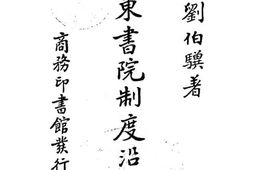 劉伯驥著
東書院制度沿
商務印書館發行